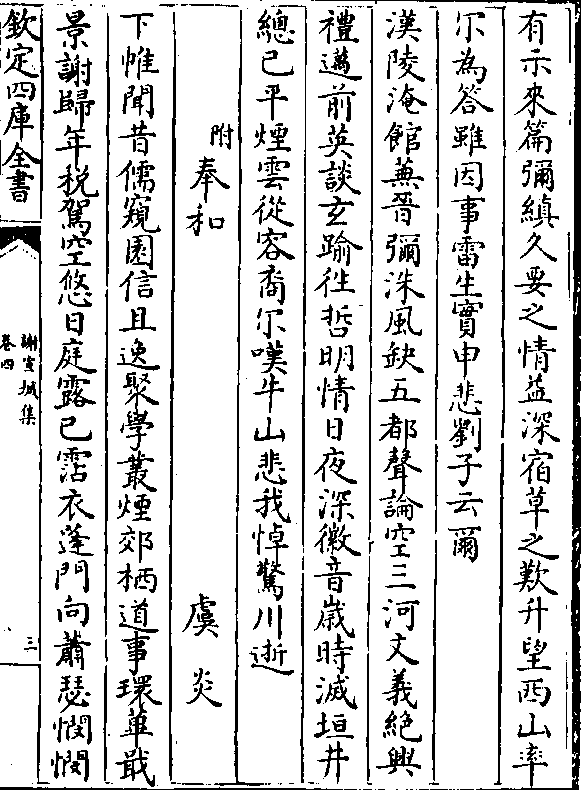 有示來篇彌縝久要之情益深宿草之歎升望西山率
尔為答雖因事雷生實申悲劉子云爾
漢陵淹館蕪晉彌洙風缺五都聲論空三河文義絕興
禮邁前英談玄踰徃哲明情日夜深徽音歲時滅垣井
總已平煙雲從容裔尔嘆牛山悲我悼驚川逝
附奉和　虞炎
下帷聞昔儒窺園信且逸聚學叢煙郊栖道事環蓽戢
景謝歸年税駕空悠日庭露已霑衣蓬門向蕭瑟憫憫
欽定四庫全書
謝宣城集
卷四
三